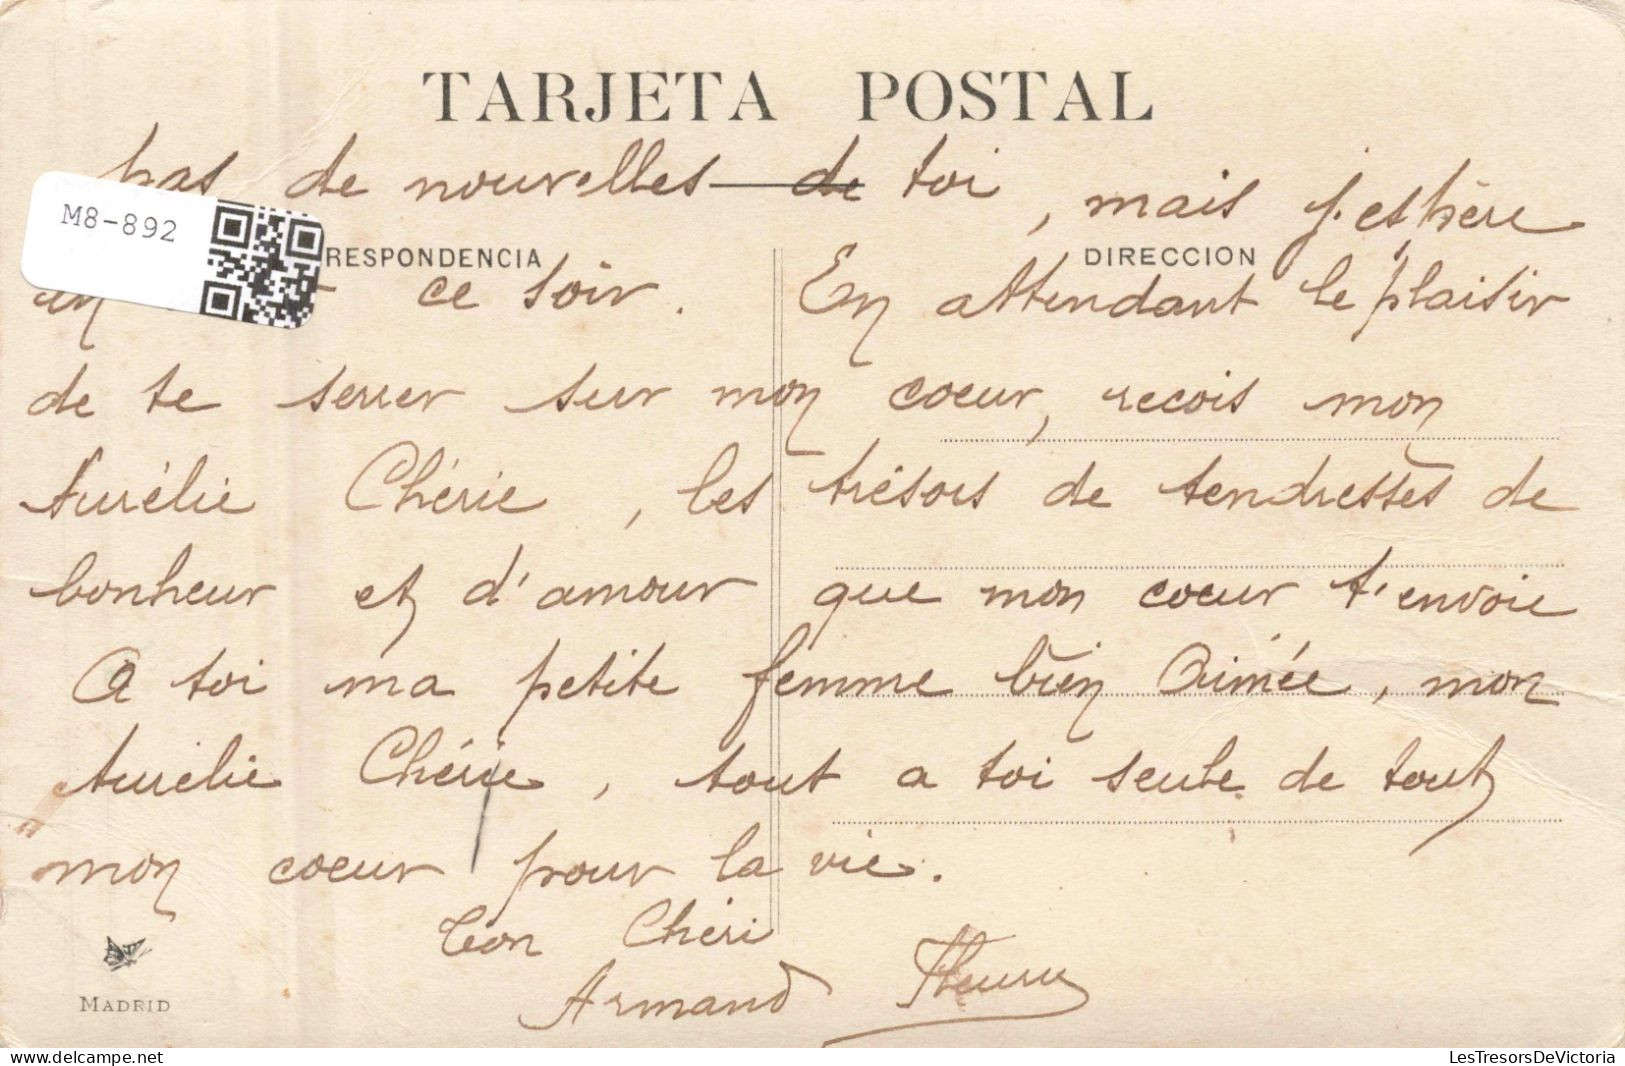 TARJETA POSTAL
pas de nouvelles de toi, mais j'espère
M8-892
RESPONDENCIA
DIRECCION
ce soir. En attendant le plaisir
de te serrer sur mon coeur, recois mon
Aurélie Chérie, les trésors de tendresses de
bonheur et d'amour que mon coeur t'envoie
A toi ma petite femme bien Aimée, mon
Aurélie Chérie, tout a toi seule de tout
mon coeur pour la vie.
Ton Chéri
Armand Fleury
MADRID
www.delcampe.net
LesTresorsDeVictoria